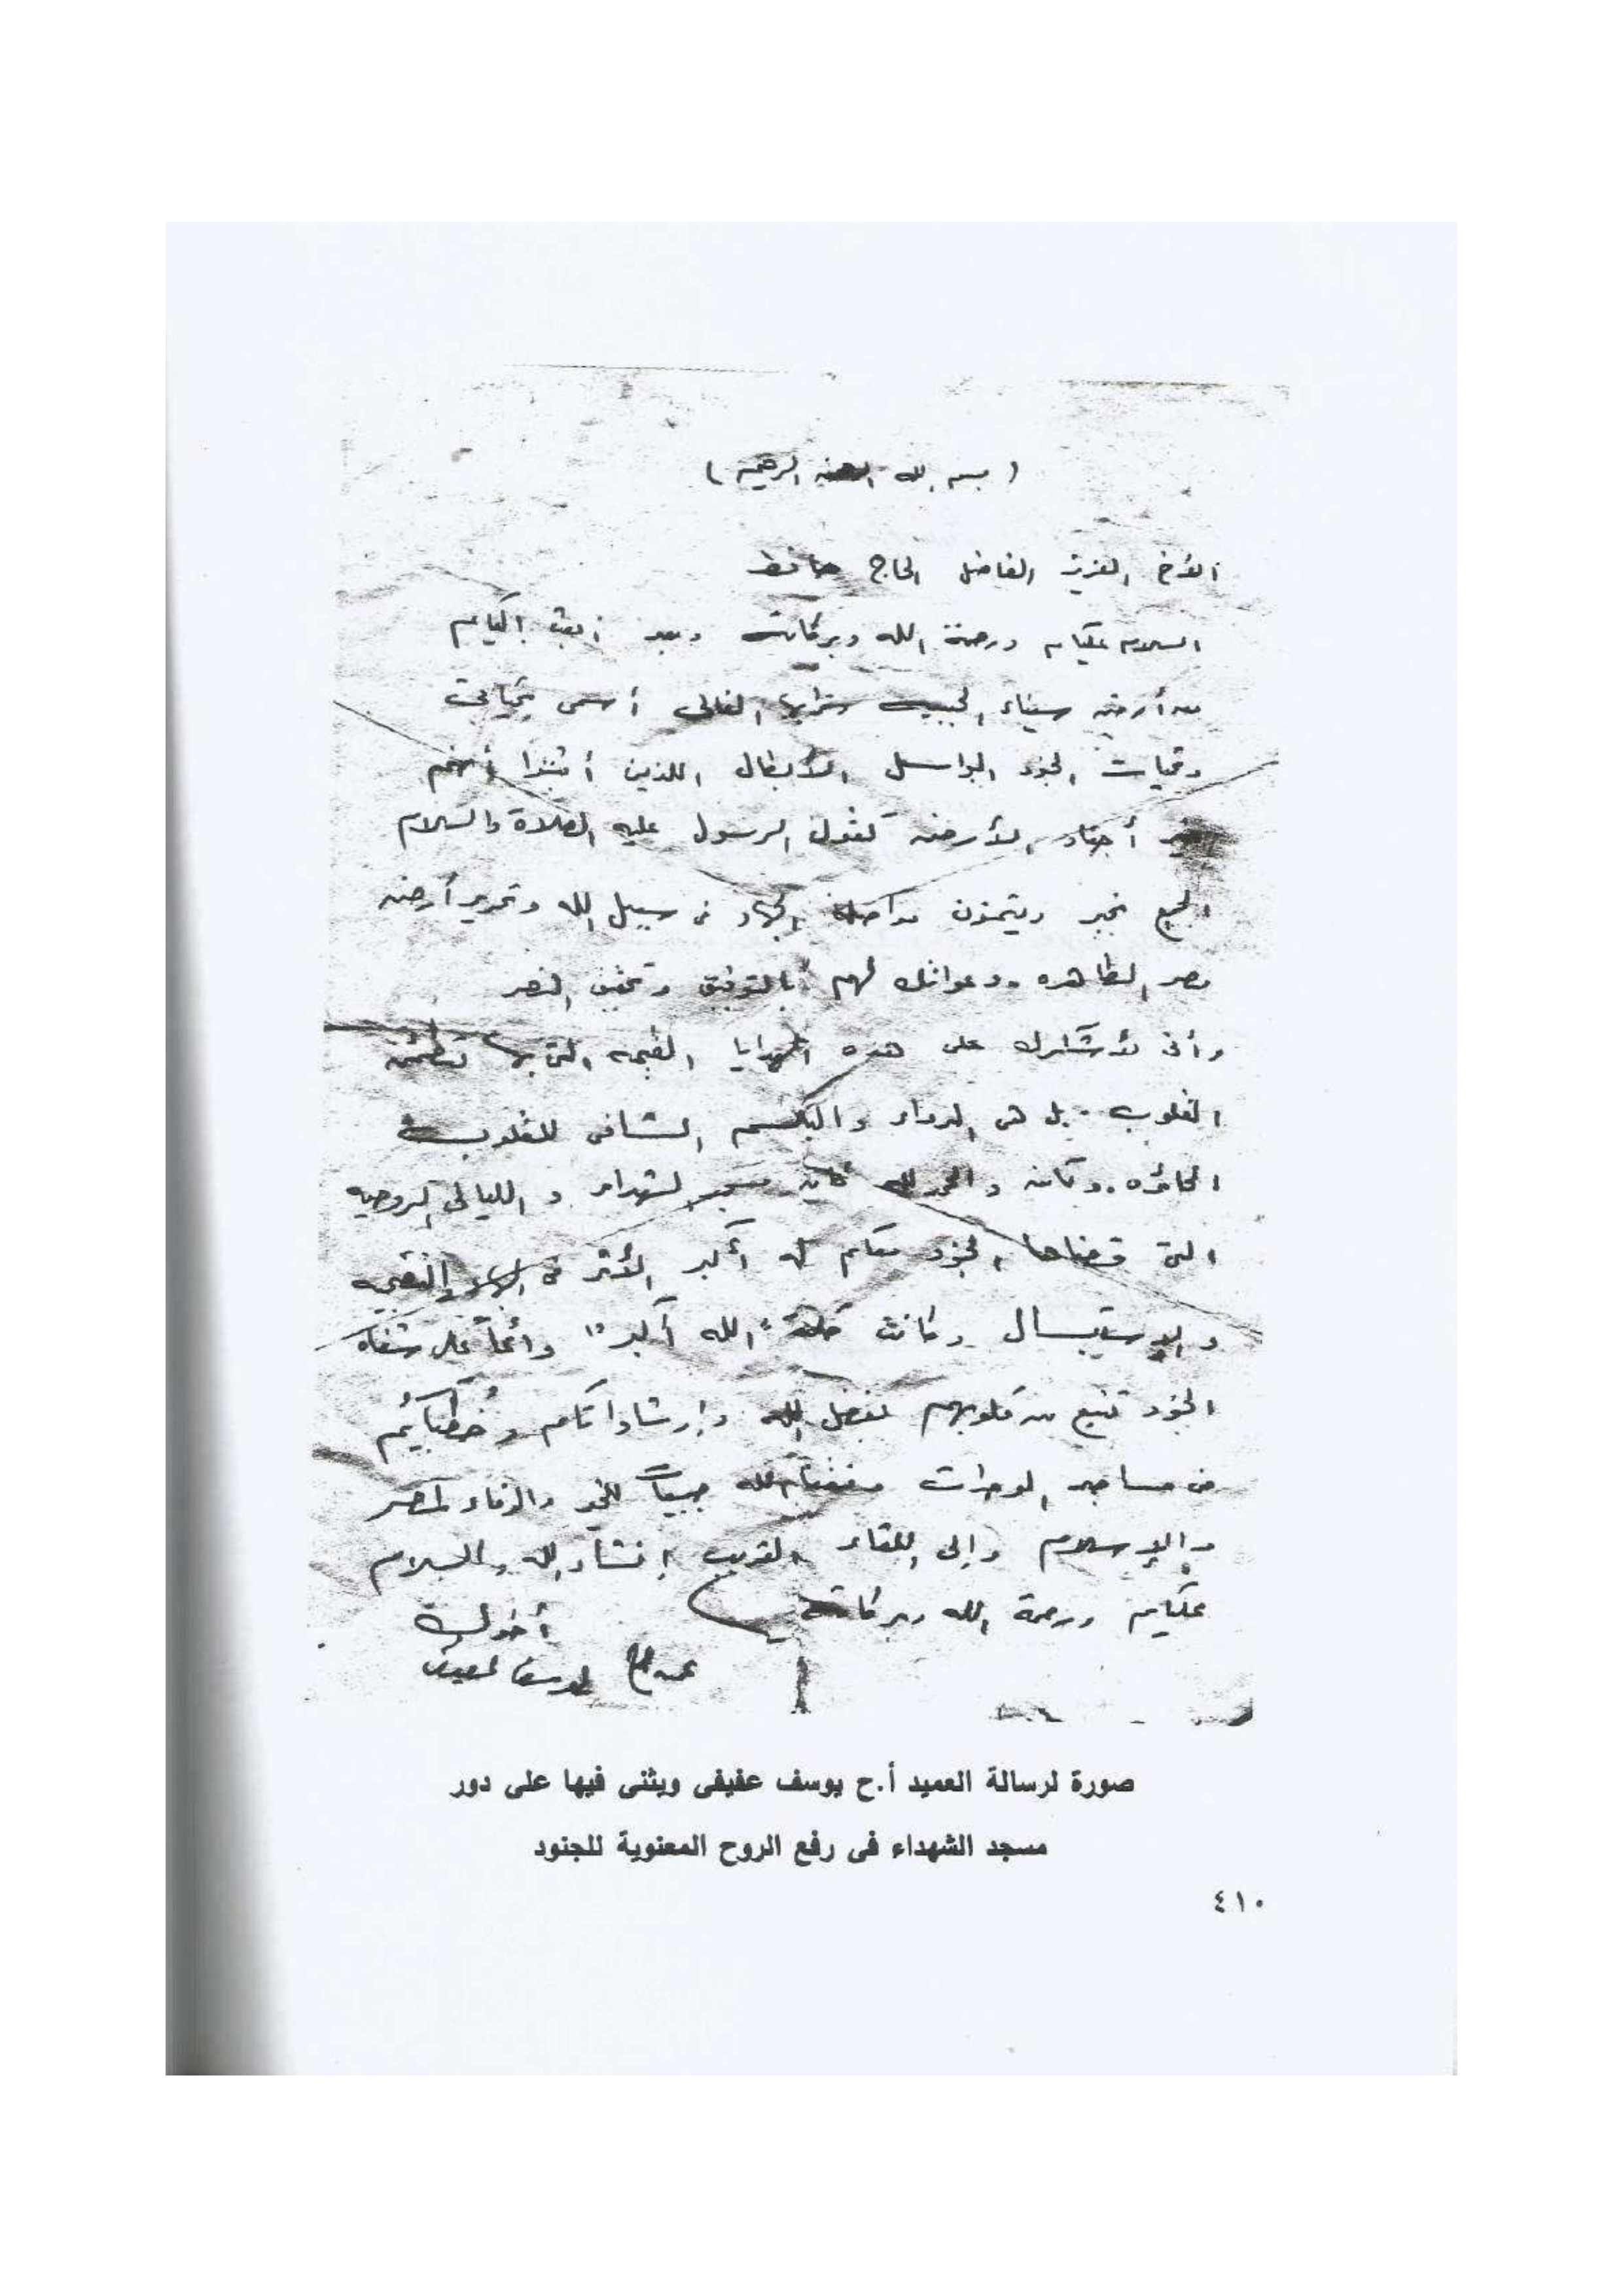 ( بسم الله الرحمن الرحيم )
الأخ العزيز الفاضل الحاج حافظ
السلام عليكم ورحمة الله وبركاته وبعد أبعث إليكم
من أرض سيناء الحبيبه بترابها الغالى أسمى تحياتى
وتحيات الجنود البواسل الأبطال اللذين أثبتوا أنهم
خير أجناد الأرض كقول الرسول عليه الصلاة والسلام
الجميع بخير ويتمنون مواصلة الجهاد فى سبيل الله وتحرير أرض
مصر الطاهره ودعواتك لهم بالتوفيق وتحقيق النصر
وأنى لأشكرك على هذه الهدايا القيمه التى بها تطمئن
القلوب بل هى الدواء والبلسم الشافى للقلوب
الحائره . وكان والحمد لله مسجد الشهداء و الليالى الروحيه
التى قضاها الجنود معكم له أكبر الأثر فى والتضحيه
والإستبسال وكانت كلمة "الله أكبر" دائماً على شفاه
الجنود تنبع من قلوبهم بفضل الله وإرشاداتكم وخطبائكم
فى مساجد الوحدات وفقنا الله جميعاً للخير والوفاء لمصر
والإسلام وإلى اللقاء القريب إنشاء الله والسلام
عليكم ورحمة الله وبركاته
أخوك
يوسف عفيفى
صورة لرسالة العميد أ.ح يوسف عفيفى ويثنى فيها على دور
مسجد الشهداء فى رفع الروح المعنوية للجنود
٤١٠